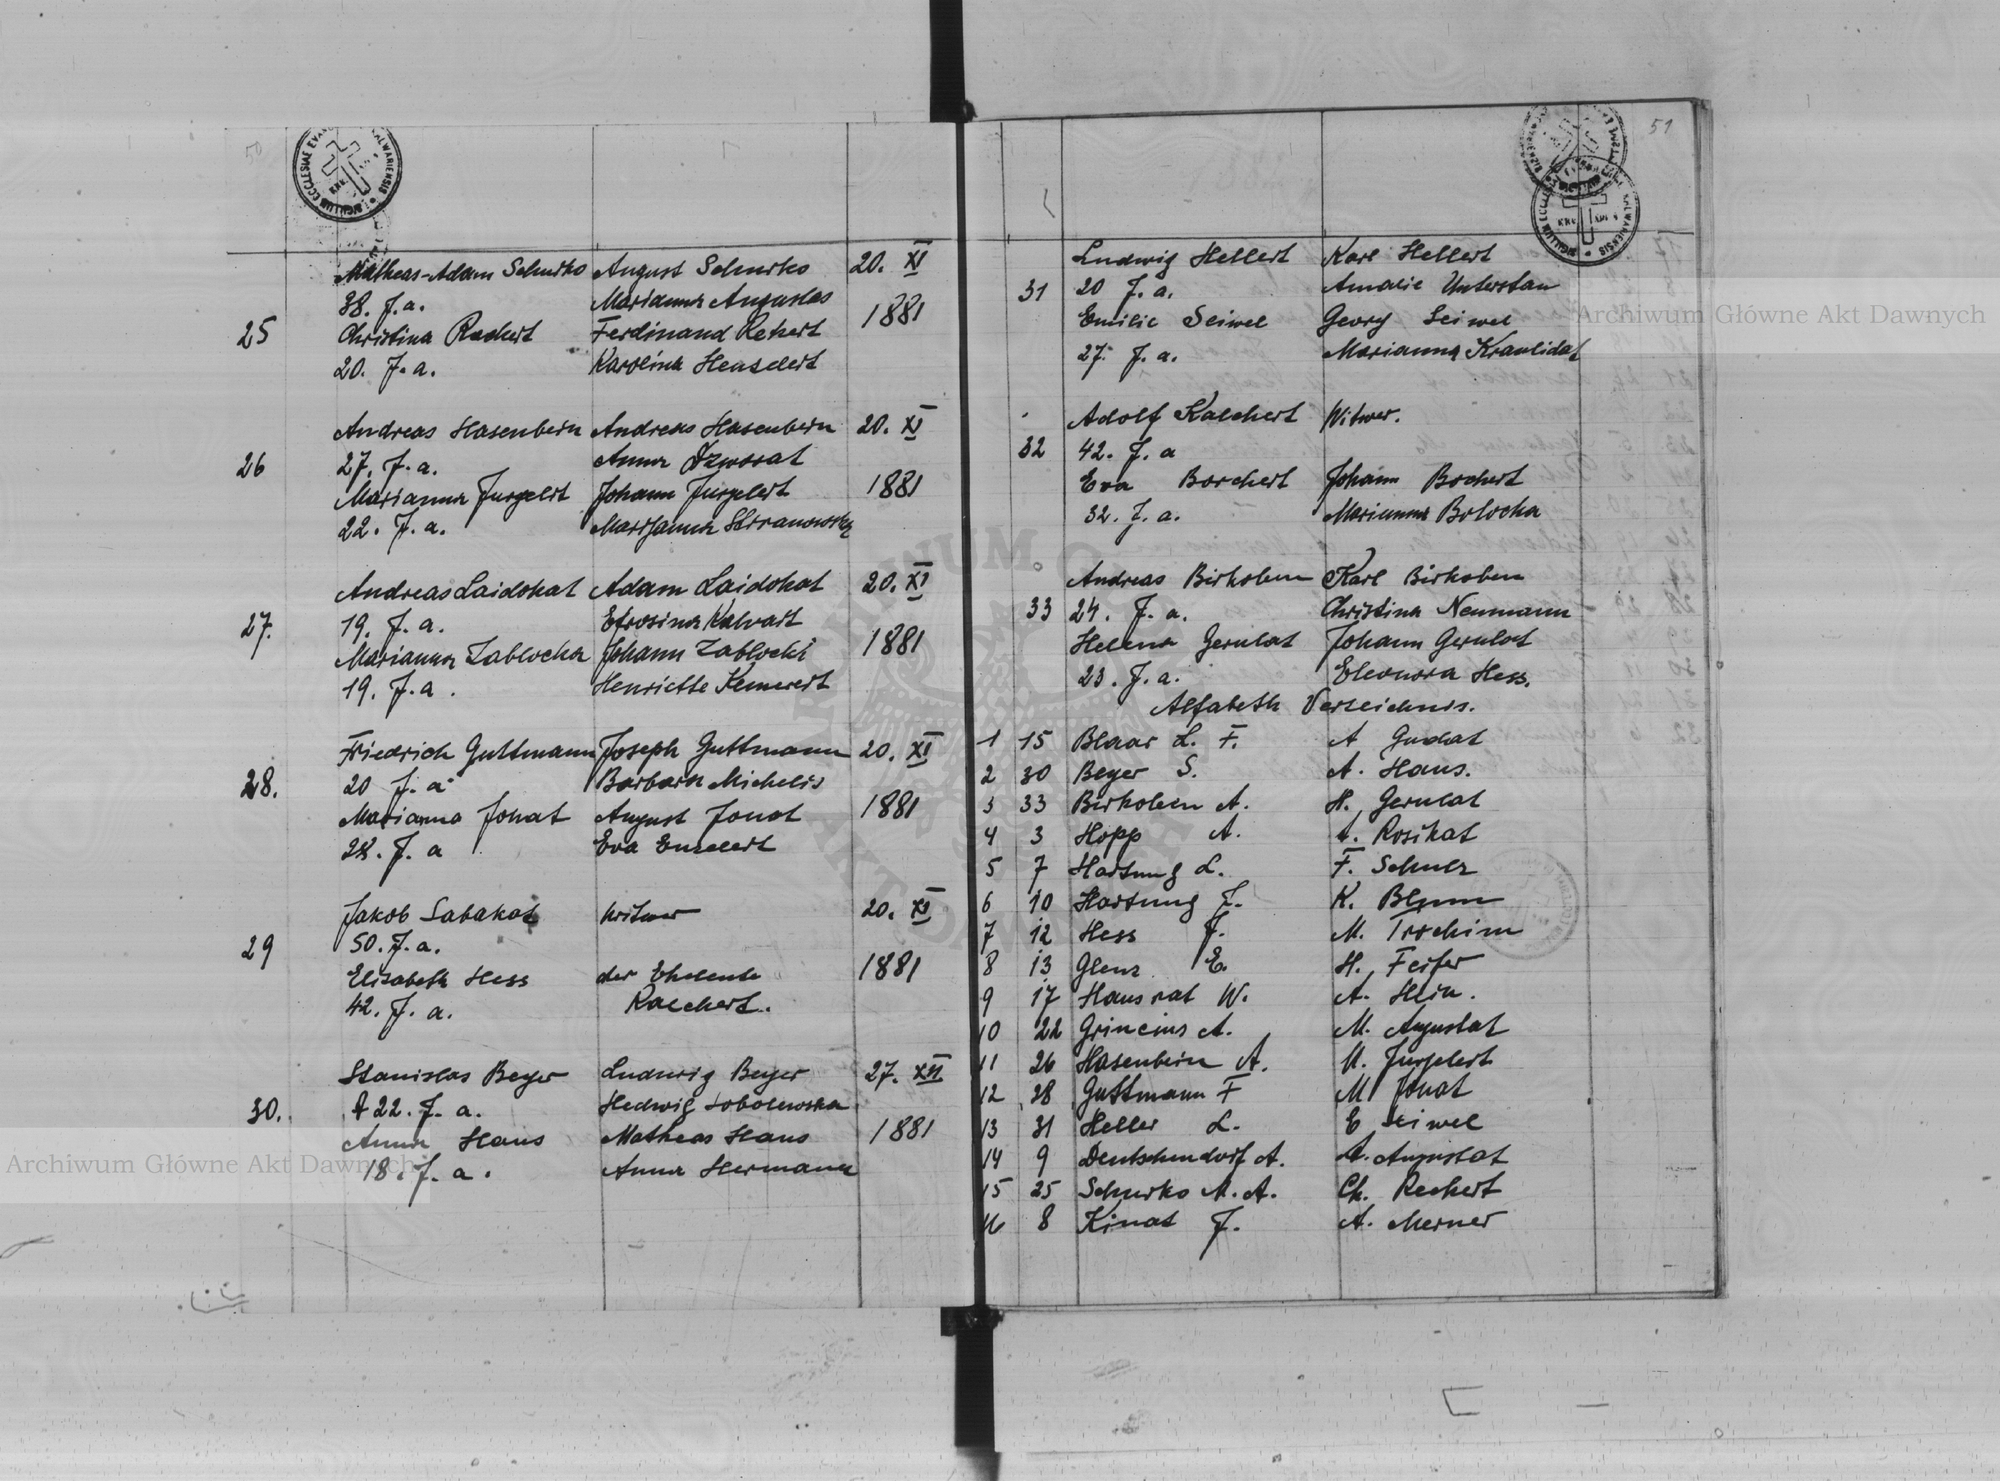 50
51
Matheas-Adam Schurko August Schurko 20. XI
38. J. a. Marianna Augustas
25 1881
Christina Rechert Ferdinand Rechert
20. J. a. Karolina Henselert
Andreas Hasenbein Andreas Hasenbein 20. XI
26 27. J. a. Anna
Marianna Jurgelert Johann Jurgelert 1881
22. J. a. Marijanna
Andreas Laidokat Adam Laidokat 20. XI
27. 19. J. a. Efrosina Kalwart
Marianna Zablocka Johann Zablocki 1881
19. J. a. Henriette Kemerert
Friedrich Guttmann Joseph Guttmann 20. XI
28. 20 J. a. Barbara Michelis
Marianna Jonat August Jonat 1881
22. J. a Eva
Jakob Sabakat Witwer 20. XI
29 50. J. a.
Elisabeth Hess der Ehelente 1881
42. J. a. Kalchert.
Stanislas Beyer Ludwig Beyer 27. XII
30. 22. J. a. Hedwig Sobolewska
Anna Haus Matheas Haus 1881
18. J. a. Anna Hermann
Ludwig Hellert Karl Hellert
31 20 J. a. Amalie Unterstan
Emilie Seiwel Georg Seiwel
27. J. a. Marianna Kraulidat
Adolf Kalchert Witwer.
32 42. J. a
Eva Borchert Johann Bochert
32. J. a. Marianna Bolocka
Andreas Birkoben Karl Birkoben
33 24. J. a. Christina Neumann
Helena Gerulat Johann Gerulat
23. J. a. Eleonora Hess.
Alfabeth Verzeichnis.
1 15 Blaar L. F. A Gudat
2 30 Beyer S. A. Haus.
3 33 Birkoben A. H. Gerulat
4 3 Hopp A. A. Rosikat
5 7 Hartung L. F. Schulz
6 10 Hartung J. K. Blum
7 12 Hess J. M. Trochim
8 13 Glenz E. H. Feifer
9 17 Hausrat W. A. Hein.
10 22 Grincius A. M. Augustat
11 26 Hasenbein A. M. Jurgelert
12 28 Guttmann F M Jonat
13 31 Heller L. E Seiwel
14 9 Deutschendorf A. A. Augustat
15 25 Schurko M. A. Ch. Rechert
16 8 Kinat J. A. Merner
Archiwum Główne Akt Dawnych
Archiwum Główne Akt Dawnych